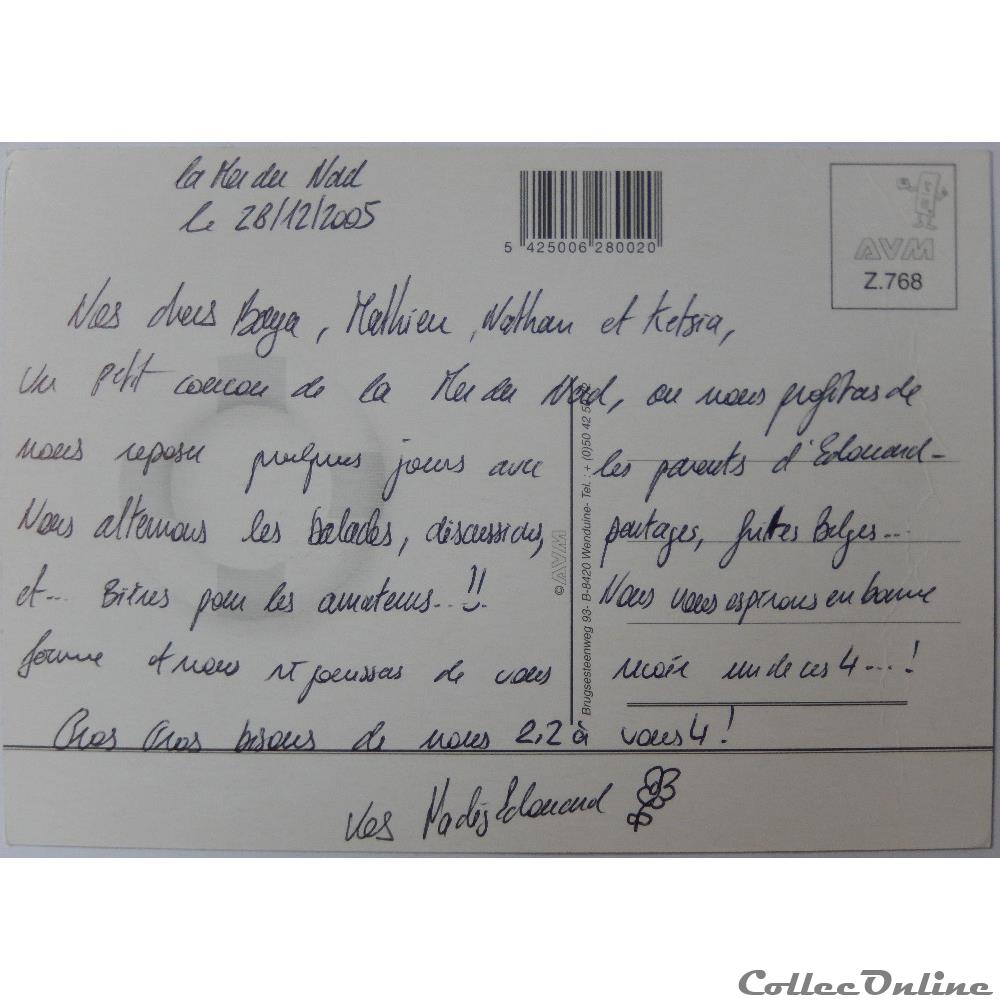 la Mer du Nord
le 28/12/2005
5 425006 280020
AVM
Z.768
Nos chers Baya, Mathieu, Nathan et Ketsia,
Un petit coucou de la Mer du Nord, où nous profitons de
nous reposer quelques jours avec les parents d'Edouard-
Nous alternons les balades, discussions, partages, frites Belges...
et... Bières pour les amateurs..!!
Nous vous espérons en bonne
forme et nous réjouissons de vous revoir un de ces 4...!
Gros Gros bisous de nous 2,2 à vous 4!
Vos Nadèj Edouard
© AVM
Brugsesteenweg 93- B-8420 Wenduine- Tel. : + (0)50 42 5
CollecOnline